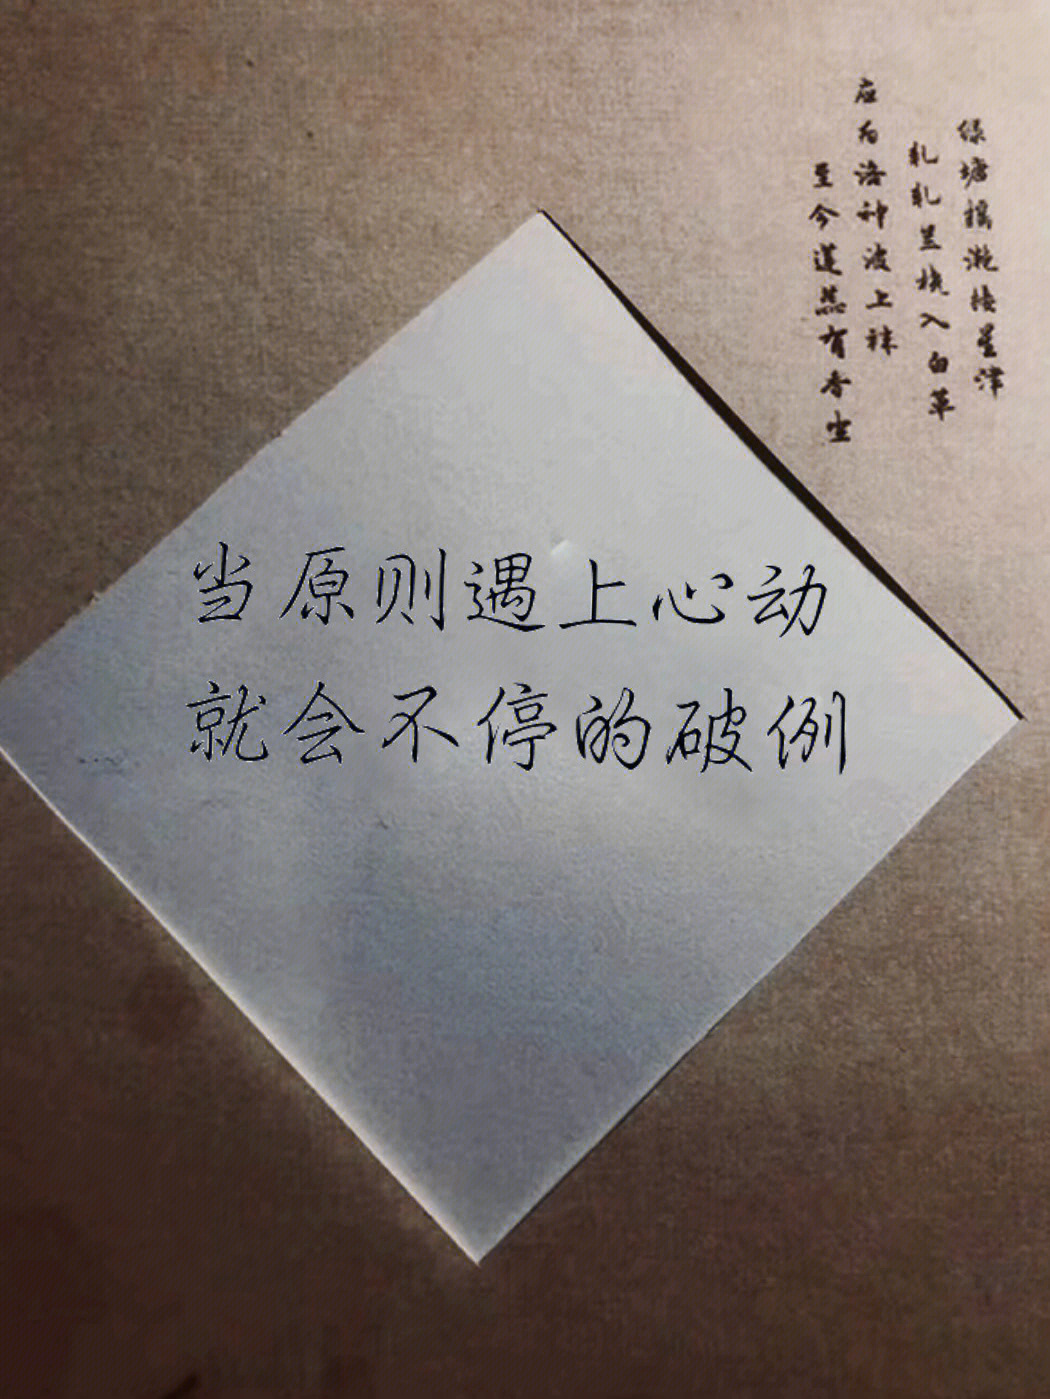 当原则遇上心动
就会不停的破例
绿塘摇滟接星津
轧轧兰桡入白苹
应为洛神波上袜
至今莲蕊有香尘